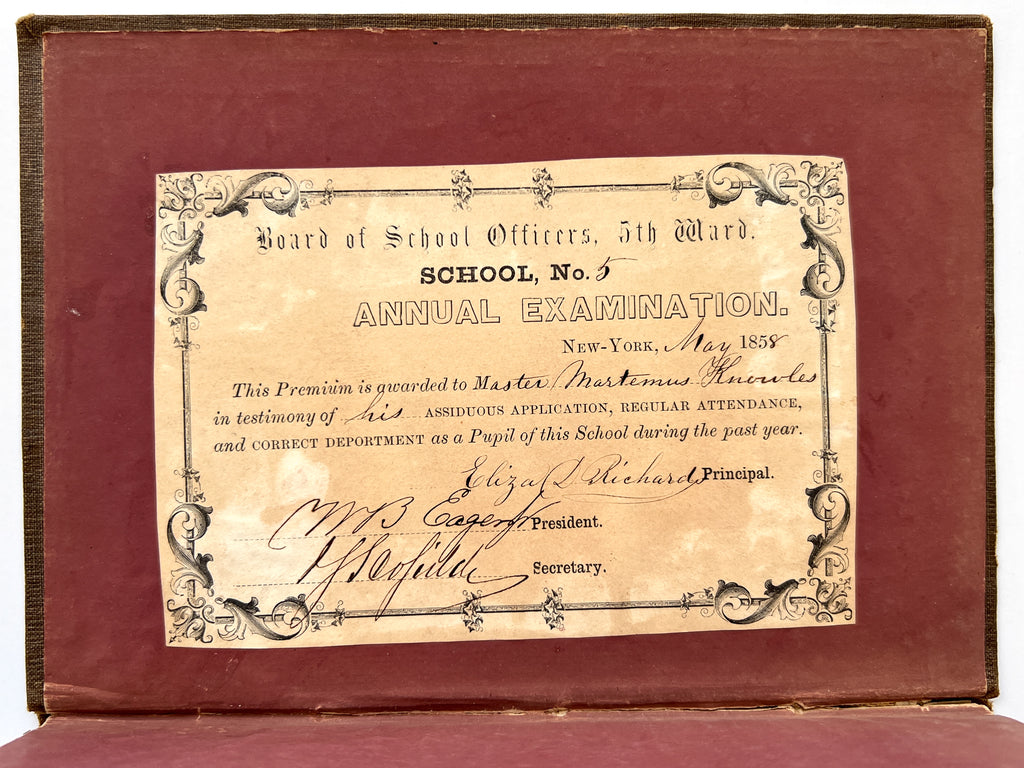 Board of School Officers, 5th Ward.
SCHOOL, No. 5
ANNUAL EXAMINATION.
NEW-YORK, May 1858
This Premium is awarded to Master Martemus Knowles
in testimony of his ASSIDUOUS APPLICATION, REGULAR ATTENDANCE,
and CORRECT DEPORTMENT as a Pupil of this School during the past year.
Eliza D Richards Principal.
Wm B Eager Jr President.
Secretary.